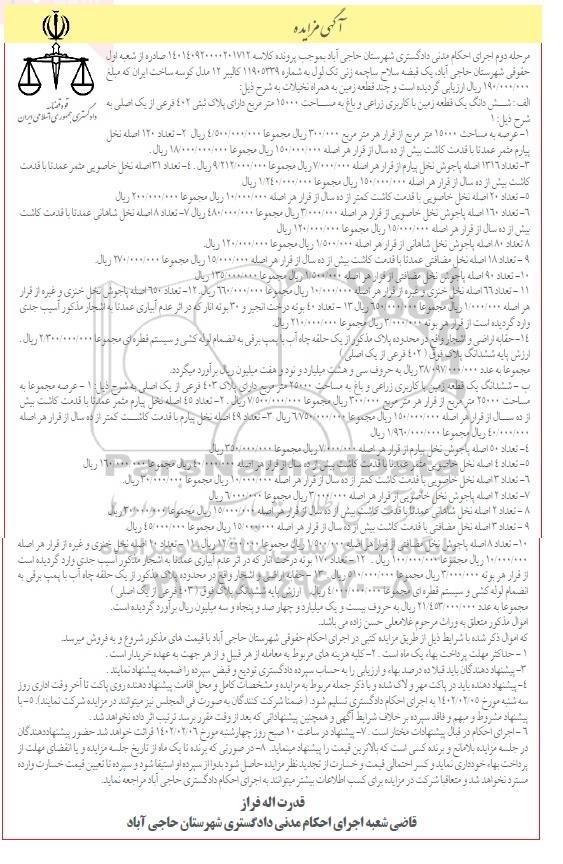 آگهی مزایده
قوه قضائیه
دادگستری جمهوری اسلامی ایران
مرحله دوم اجرای احکام مدنی دادگستری شهرستان حاجی آباد بموجب پرونده کلاسه ۱۴۰۱۴۰۹۲۰۰۰۰۲۰۱۷۱۲ صادره از شعبه اول
حقوقی شهرستان حاجی آباد، یک قبضه سلاح ساچمه زنی تک لول به شماره ۱۱۹۰۵۳۳۹ کالیبر ۱۲ مدل کوسه ساخت ایران که مبلغ
۱۹۰/۰۰۰/۰۰۰ ریال ارزیابی گردیده است و چند قطعه زمین به همراه نخیلات به شرح ذیل:
الف : شش دانگ یک قطعه زمین با کاربری زراعی و باغ به مساحت ۱۵۰۰۰ متر مربع دارای پلاک ثبتی ۴۰۲ فرعی از یک اصلی به
شرح ذیل : ۱
۱- عرصه به مساحت ۱۵۰۰۰ متر مربع از قرار هر متر مربع ۳۰۰/۰۰۰ ریال مجموعا ۴/۵۰۰/۰۰۰/۰۰۰ ریال ۲- تعداد ۱۲۰ اصله نخل
پیارم مثمر عمدتا با قدمت کاشت بیش از ده سال از قرار هر اصله ۱۵۰/۰۰۰/۰۰۰ ریال مجموعا ۱۸/۰۰۰/۰۰۰/۰۰۰ ریال.
۳- تعداد ۱۳۱۶ اصله پاجوش نخل پیارم از قرار هر اصله ۷/۰۰۰/۰۰۰ ریال مجموعا ۹/۲۱۲/۰۰۰/۰۰۰ ریال . ۴- تعداد ۳۱ اصله نخل خاصویی مثمر عمدتا با قدمت
کاشت بیش از ده سال از قرار هر اصله ۱۵۰/۰۰۰/۰۰۰ ریال مجموعا ۱/۲۴۰/۰۰۰/۰۰۰ ریال
۵- تعداد ۲۰ اصله نخل خاصویی با قدمت کاشت کمتر از ده سال از قرار هر اصله ۱۰/۰۰۰/۰۰۰ ریال مجموعا ۲۰۰/۰۰۰/۰۰۰ ریال
۶- تعداد ۱۶۰ اصله پاجوش نخل خاصویی از قرار هر اصله ۳/۰۰۰/۰۰۰ ریال مجموعا ۴۸۰/۰۰۰/۰۰۰ ریال ۷- تعداد ۸ اصله نخل شاهانی عمدتا با قدمت کاشت
بیش از ده سال از قرار هر اصله ۱۵/۰۰۰/۰۰۰ ریال مجموعا ۱۲۰/۰۰۰/۰۰۰ ریال
۸ تعداد ۸۰ اصله پاجوش نخل شاهانی از قرار هر اصله ۱/۵۰۰/۰۰۰ ریال مجموعا ۱۲۰/۰۰۰/۰۰۰ ریال.
۹ - تعداد ۱۸ اصله نخل مضافتی عمدتا با قدمت کاشت بیش از ده سال از قرار هر اصله ۱۵/۰۰۰/۰۰۰ ریال مجموعا ۲۷۰/۰۰۰/۰۰۰ ریال.
۱۰- تعداد ۹۰ اصله پاجوش نخل مضافتی از قرار هر اصله ۱/۵۰۰/۰۰۰ ریال مجموعا ۱۳۵/۰۰۰/۰۰۰ ریال
۱۱ - تعداد ۶۶ اصله نخل خنزی و غیره از قرار هر اصله ۱۰/۰۰۰/۰۰۰ ریال مجموعا ۶۶۰/۰۰۰/۰۰۰ ریال. ۱۲- تعداد ۶۵۰ اصله پاجوش نخل خنزی و غیره از قرار
هر اصله ۱/۰۰۰/۰۰۰ ریال مجموعا ۶۵۰/۰۰۰/۰۰۰ ریال ۱۳ - تعداد ۴۰ بوته درخت انجیر و ۳۰ بوته انار که در اثر عدم آبیاری عمدتا به اشجار مذکور آسیب جدی
وارد گردیده است از قرار هر بوته ۳/۰۰۰/۰۰۰ ریال مجموعا ۲۱۰/۰۰۰/۰۰۰ ریال.
۱۴- حقابه اراضی و اشجار واقع در محدوده پلاک مذکور از یک حلقه چاه آب با پمپ برقی به انضمام لوله کشی و سیستم قطره ای مجموعا ۲/۳۰۰/۰۰۰/۰۰۰ ریال . (
ارزش پایه ششدانگ پلاک فوق ( ۴۰۲ فرعی از یک اصلی )
مجموعا به عدد ۳۸/۰۹۷/۰۰۰/۰۰۰ ریال به حروف سی و هشت میلیارد و نود و هفت میلیون ریال برآورد میگردد.
ب - ششدانگ یک قطعه زمین با کاربری زراعی و باغ به مساحت ۲۵۰۰۰ متر مربع دارای پلاک ۴۰۳ فرعی از یک اصلی به شرح ذیل : ۱ - عرصه مجموعا به
مساحت ۲۵۰۰۰ متر مربع از قرار هر متر مربع ۳۰۰/۰۰۰ ریال مجموعا ۷/۵۰۰/۰۰۰/۰۰۰ ریال . ۲- تعداد ۴۵ اصله نخل پیارم مثمر عمدتا با قدمت کاشت بیش
از ده سال از قرار هر اصله ۱۵۰/۰۰۰/۰۰۰ ریال مجموعا ۶/۷۵۰/۰۰۰/۰۰۰ ریال ۳- تعداد ۴۹ اصله نخل پیارم با قدمت کاشت کمتر از ده سال از قرار هر اصله
۴۰/۰۰۰/۰۰۰ ریال مجموعا ۱/۹۶۰/۰۰۰/۰۰۰ ریال
۴- تعداد ۵۰ اصله پاجوش نخل پیارم از قرار هر اصله ۷/۰۰۰/۰۰۰ ریال مجموعا ۳۵۰/۰۰۰/۰۰۰ ریال
۵- تعداد ۴ اصله نخل خاصویی مثمر عمدتا با قدمت کاشت بیش از ده سال از قرار هر اصله ۴۰/۰۰۰/۰۰۰ ریال مجموعا ۱۶۰/۰۰۰/۰۰۰ ریال
۶- تعداد ۳ اصله نخل خاصویی با قدمت کاشت کمتر از ده سال از قرار هر اصله ۱۰/۰۰۰/۰۰۰ ریال مجموعا ۳۰/۰۰۰/۰۰۰ ریال.
۷- تعداد ۲ اصله پاجوش نخل خاصویی از قرار هر اصله ۳/۰۰۰/۰۰۰ ریال مجموعا ۶/۰۰۰/۰۰۰ ریال
۸ - تعداد ۲ اصله نخل شاهانی عمدتا با قدمت کاشت بیش از ده سال از قرار هر اصله ۱۵/۰۰۰/۰۰۰ ریال مجموعا ۳۰/۰۰۰/۰۰۰ ریال
۹ - تعداد ۳ اصله نخل مضافتی با قدمت کاشت بیش از ده سال از قرار هر اصله ۱۵/۰۰۰/۰۰۰ ریال مجموعا ۴۵/۰۰۰/۰۰۰ ریال.
۱۰- تعداد ۸ اصله پاجوش نخل مضافتی از قرار هر اصله ۱/۵۰۰/۰۰۰ ریال مجموعا ۱۲/۰۰۰/۰۰۰ ریال . ۱۱- تعداد ۲۰ اصله نخل خنزی و غیره از قرار هر اصله
۱۰/۰۰۰/۰۰۰ ریال مجموعا ۱۰۰/۰۰۰/۰۰۰ ریال . ۱۲- تعداد ۱۷۰ بوته درخت انار که در اثر عدم آبیاری عمدتا به اشجار مذکور آسیب جدی وارد گردیده است
از قرار هر بوته ۳/۰۰۰/۰۰۰ ریال مجموعا ۵۱۰/۰۰۰/۰۰۰ ریال . ۱۳ - حقابه اراضی و اشجار واقع در محدوده پلاک مذکور از یک حلقه چاه آب با پمپ برقی به
انضمام لوله کشی و سیستم قطره ای مجموعا ۴/۰۰۰/۰۰۰/۰۰۰ ریال . ارزش پایه ششدانگ پلاک فوق ( ۴۰۳ فرعی از یک اصلی )
مجموعا به عدد ۲۱/۴۵۳/۰۰۰/۰۰۰ ریال به حروف بیست و یک میلیارد و چهار صد و پنجاه و سه میلیون ریال برآورد گردیده است.
اموال مذکور متعلق به وراث مرحوم غلامعلی حسن زاده می باشد.
که اموال ذکر شده با شرایط ذیل از طریق مزایده کتبی در اجرای احکام حقوقی شهرستان حاجی آباد با قیمت های مذکور شروع و به فروش میرسد.
۱ - حداکثر مهلت پرداخت بهاء یک ماه است . ۲- کلیه هزینه های مربوط به معامله از هر قبیل و از هر جهت به عهده خریدار است .
۳- پیشنهاد دهندگان باید قبلا ده درصد بهاء و ارزیابی را به حساب سپرده دادگستری تودیع و قبض سپرده را ضمیمه پیشنهاد نمایند .
۴- پیشنهاد دهنده باید در پاکت مهر و لاک شده و با ذکر جمله مربوط به مزایده و مشخصات کامل و محل اقامت پیشنهاد دهنده روی پاکت تا آخر وقت اداری روز
سه شنبه مورخ ۱۴۰۲/۰۲/۰۵ به اجرای احکام دادگستری تسلیم شود . ( ضمنا شرکت کنندگان به صورت فی المجلس نیز میتوانند در مزایده شرکت نمایند). ۵- با
پیشنهاد مشروط و مبهم و فاقد سپرده بر خلاف شرایط آگهی و همچنین پیشنهاداتی که بعد از وقت مقرر برسد ترتیب اثر داده نخواهد شد .
۶ - اجرای احکام در قبال پیشنهادات مختار است . ۷- پیشنهاد در ساعت ۱۰ صبح روز چهارشنبه مورخ ۱۴۰۲/۰۲/۰۶ قرائت خواهد شد حضور پیشنهاددهندگان
در جلسه مزایده بلامانع و برنده کسی است که بالاترین قیمت را پیشنهاد مینماید. ۸- در صورتی که برنده تا یک ماه از تاریخ جلسه مزایده و یا انقضای مهلت از
پرداخت بهاء خودداری نماید و کسر احتمالی قیمت و خسارت از تجدید نظر مزایده حاصل شود بدوا از سپرده او استیفا شود و سپرده تا تعیین قیمت خسارت وارده
مسترد نخواهد شد و متعاقبا شرکت در مزایده برای کسب اطلاعات بیشتر میتوانند به اجرای احکام دادگستری حاجی آباد مراجعه نماید.
قدرت اله فراز
قاضی شعبه اجرای احکام مدنی دادگستری شهرستان حاجی آباد